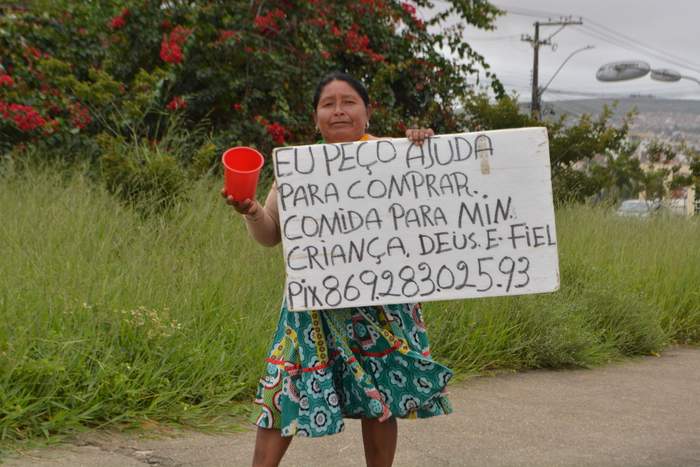 EU PEÇO AJUDA
PARA COMPRAR.
COMIDA PARA MIN.
CRIANÇA. DEUS. E. FIEL
Pix869.283.025.93